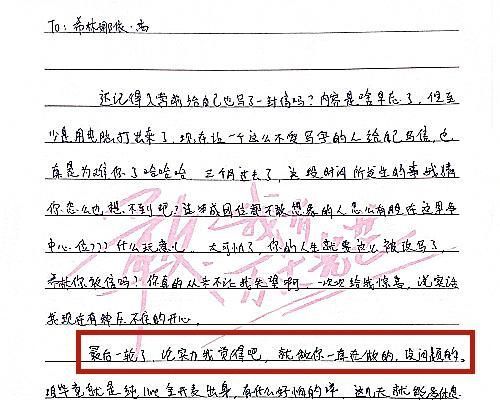 To: 希林娜依·高
还记得入营前给自己也写了一封信吗？内容是啥早忘了，但至
少是用电脑打出来了，现在让一个这么不爱写字的人给自己写信，也
真是为难你了哈哈哈 三个月过去了，这段时间所发生的事我猜
你怎么也想不到吧？连当成团位都不敢想象的人怎么有胆在这里争
中心位??? 什么玩意儿，太可怕了，你的人生就要这么被改写了，
希林你敢信吗？你真的从来不让我失望啊 一次次给我惊喜，说实话
我现在有种压不住的开心。
最后一轮了，论实力我觉得吧，就做你一直在做的，没问题的。
咱毕竟就是纯live全开麦出身，有什么好怕的